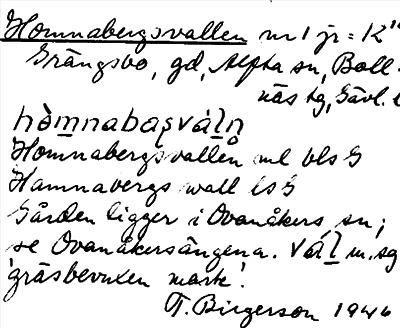 Homnabergsvallen nr 1 jr = K"
Grängsbo, gd, Alfta sn, Boll-
näs tg, Gävl. l
hòmnabaşváḷn̥
Homnabergsvallen ml bls G
Hamnabergs wall ls G
Gården ligger i Ovanåkers sn;
se Ovanåkersängena. Vaḷ m. sg
'gräsbevuxen mark'.
T. Birgerson 1946